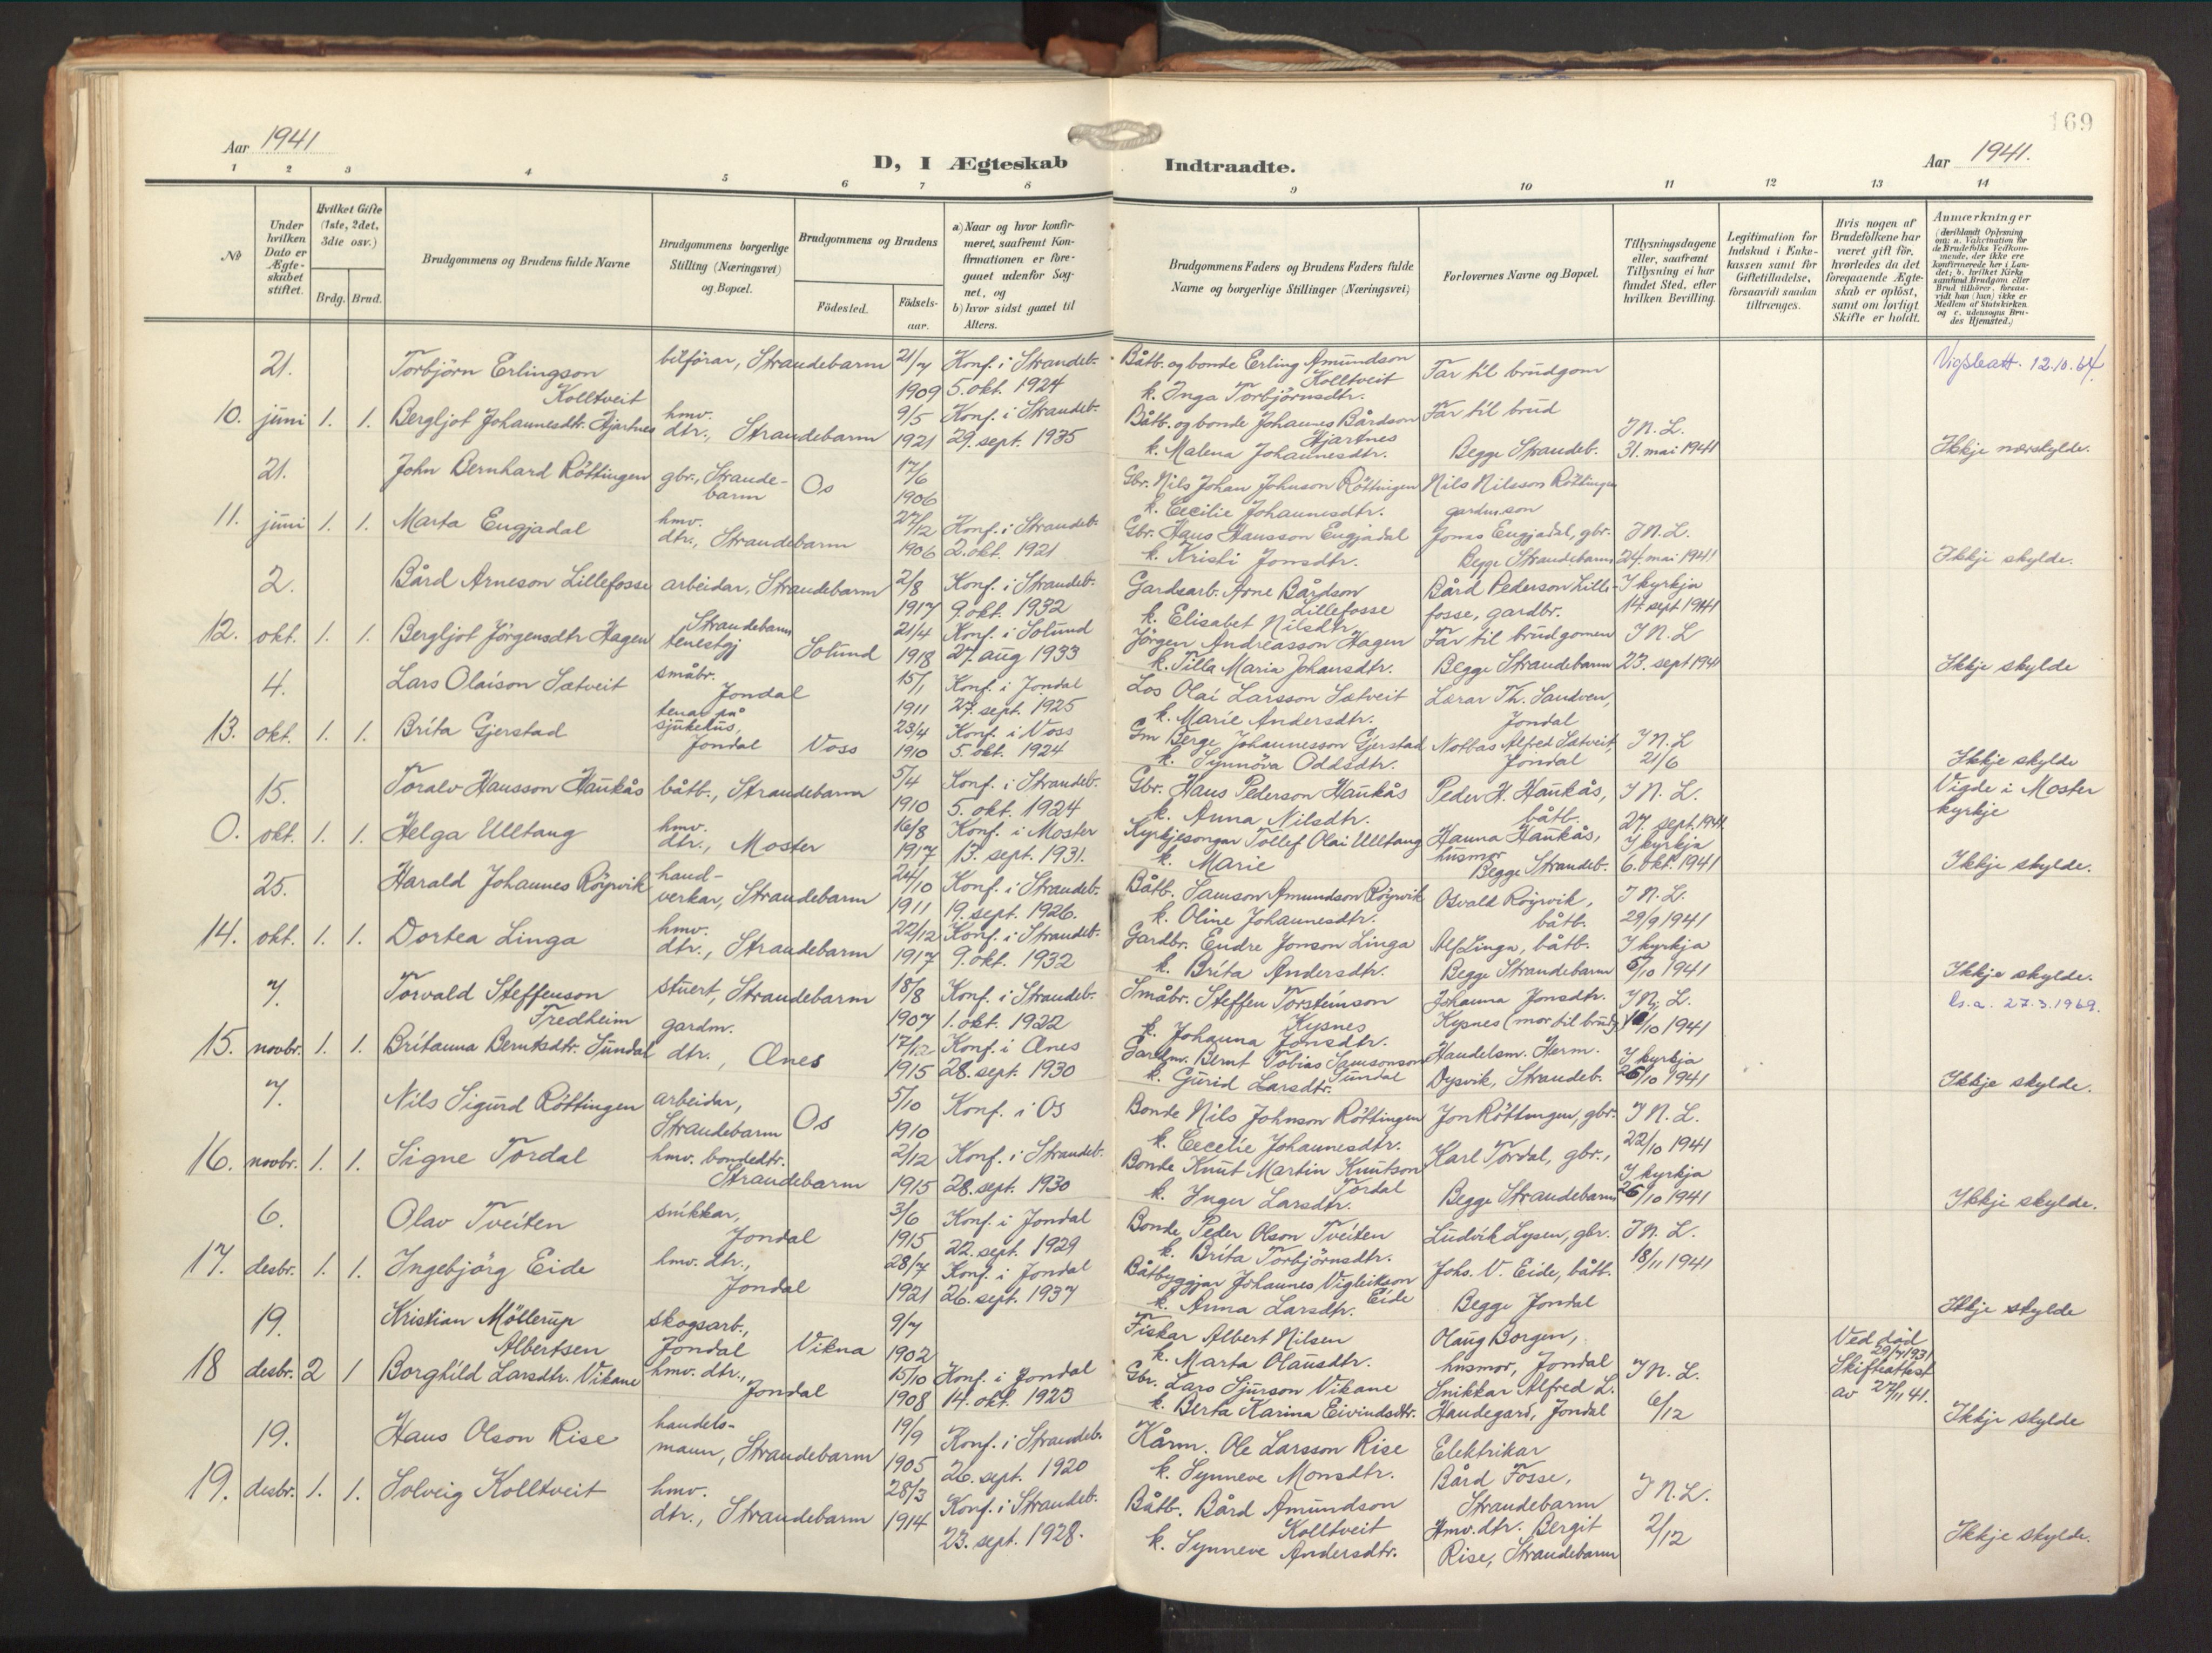 169
Aar 1941
D, I Ægteskab Indtraadte.
Aar 1941.
1 2 3 4 5 6 7 8 9 10 11 12 13 14
No
Under hvilken Dato er Ægteskabet stiftet.
Hvilket Gifte (1ste, 2det, 3die osv.)
Brdg. Brud.
Brudgommens og Brudens fulde Navne
Brudgommens borgerlige Stilling (Næringsvei) og Bopæl.
Brudgommens og Brudens
Födested.
Födselsaar.
a) Naar og hvor konfirmeret, saafremt Konfirmationen er foregaaet udenfor Sognet, og
b) hvor sidst gaaet til Alters.
Brudgommens Faders og Brudens Faders fulde Navne og borgerlige Stillinger (Næringsvei)
Forlovernes Navne og Bopæl.
Tillysningsdagene eller, saafremt Tillysning ei har fundet Sted, efter hvilken Bevilling.
Legitimation for Indskud i Enkekassen samt for Giftetilladelse, forsaavidt saadan tiltrænges.
Hvis nogen af Brudefolkene har været gift för, hvorledes da det foregaaende Ægteskab er oplöst, samt om lovligt Skifte er holdt.
Anmærkninger (deriblandt Oplysning om: a. Vakcination for de Brudefolks Vedkommende, der ikke ere konfirmerede her i Landet; b. hvilket Kirkesamfund Brudgom eller Brud tilhörer, forsaavidt han (hun) ikke er Medlem af Statskirken og c. udensogns Brudes Hjemsted.)
10. 21. juni 1. 1.
Torbjörn Erlingson Kolltveit
bilförar, Strandebarm
21/7 1909
Konf. i Strandeb. 5. okt. 1924
Båtb. og bonde Erling Amundson Kolltveit
k. Inga Torbjörnsdtr.
Far til brudgom
Vigsleatt. 12.10.64.
Bergljot Johannesdtr. Hjartnes
hmv. dtr., Strandebarm
9/5 1921
Konf. i Strandeb. 29. sept. 1935
Båtb. og bonde Johannes Bårdson Hjartnes
k. Malena Johannesdtr.
Far til brud
Begge Strandeb.
I N. L. 31. mai 1941
Ikkje nærskylde.
11. 21. juni 1. 1.
John Bernhard Röttingen
gbr., Strandebarm
Os
17/6 1906
Gbr. Nils Johan Johnson Röttingen
k. Cecilie Johannesdtr.
Nils Nilsson Röttingen gardm.son
Marta Engjadal
hmv. dtr., Strandebarm
27/12 1906
Konf. i Strandeb. 2. okt. 1921
Gbr. Hans Hansson Engjadal
k. Kristi Jonsdtr.
Jonas Engjadal, gbr.
Begge Strandebarm
I N. L. 24. mai 1941
Ikkje skylde.
12. 2. okt. 1. 1.
Bård Arneson Lillefosse
arbeidar, Strandebarm
2/8 1917
Konf. i Strandeb. 9. okt. 1932
Gardsarb. Arne Bårdson Lillefosse
k. Elisabet Nilsdtr.
Bård Pederson Lillefosse, gardbr.
I kyrkja 14. sept 1941
Bergljot Jörgensdtr Hagen
Strandebarm tenestgj
Solund
21/4 1918
Konf. i Solund 27. aug 1933
Jörgen Andreasson Hagen
k. Tilla Maria Johansdtr.
Far til brudgomen
Begge Strandebarm
I N. L 23. sept 1941
Ikkje skylde
13. 4. okt. 1. 1.
Lars Olaison Sætveit
småbr. Jondal
15/1 1911
Konf. i Jondal 27. sept. 1925
Los Olai Larsson Sætveit
k. Marie Andersdtr.
Lærar Th. Sandven, Jondal
Brita Gjerstad
tenar på sjukehus, Jondal
Voss
23/4 1910
Konf. i Voss 5. okt. 1924
Gm Berge Johannesson Gjerstad
k. Synnöva Oddsdtr.
Notbas Alfred Sætveit Jondal
I N. L 21/6
Ikkje skylde
0. 15. okt. 1. 1.
Toralv Hansson Haukås
båtb., Strandebarm
5/4 1910
Konf. i Strandeb. 5. okt. 1924
Gbr. Hans Pederson Haukås
k. Anna Nilsdtr.
Peder H. Haukås, båtb.
I N. L. 27. sept. 1941
Vigde i Moster kyrkje
Helga Ulltang
hmv. dtr., Moster
16/8 1917
Konf. i Moster 13. sept. 1931.
Kyrkjesongar Tollef Olai Ulltang
k. Marie
Hanna Haukås, husmor
Begge Strandeb.
I kyrkja 6. okt. 1941
Ikkje skylde.
14. 25. okt. 1. 1.
Harald Johannes Röyrvik
handverkar, Strandebarm
24/10 1911
Konf. i Strandeb. 19. sept. 1926.
Båtb. Samson Amundson Röyrvik
k. Oline Johannesdtr.
Osvald Röyrvik, båtb.
I N. L. 29/9 1941
Dortea Linga
hmv. dtr., Strandebarm
22/12 1917
Konf. i Strandeb. 9. okt. 1932
Gardbr. Endre Jonson Linga
k. Brita Andersdtr.
Alf Linga, båtb.
Begge Strandebarm
I kyrkja 5/10 1941
Ikkje skylde.
15. 7. novbr. 1. 1.
Torvald Steffenson Tredheim
stuert, Strandebarm
18/8 1907
Konf. i Strandeb. 1. okt. 1922
Småbr. Steffen Torsteinson Kysnes
k. Johanna Jonsdtr.
Johanna Jonsdtr. Kysnes (mor til brudg.)
I N. L. 10/10 1941
Ls.a. 27.3.1969.
Britanna Berntsdtr. Sundal
gardm. dtr., Ænes
17/12 1915
Konf. i Ænes 28. sept. 1930
Gardm. Bernt Tobias Samsonson Sundal
k. Gurid Larsdtr.
Handelsm. Herm. Dysvik, Strandeb.
I kyrkja 26/10 1941
Ikkje skylde.
16. 7. novbr. 1. 1.
Nils Sigurd Röttingen
arbeidar, Strandebarm
Os
5/10 1910
Konf. i Os
Bonde Nils Johnson Röttingen
k. Cecelie Johannesdtr.
Jon Röttingen, gbr.
I N. L. 22/10 1941
Signe Tordal
hmv. bondedtr. Strandebarm
2/12 1915
Konf. i Strandeb. 28. sept. 1930
Bonde Knut Martin Knutson Tordal
k. Inger Larsdtr.
Karl Tordal, gbr.,
Begge Strandebarm
I kyrkja 26/10 1941
Ikkje skylde.
17. 6. desbr. 1. 1.
Olav Tveiten
snikkar, Jondal
3/6 1915
Konf. i Jondal 22. sept. 1929
Bonde Peder Olson Tveiten
k. Brita Torbjörnsdtr.
Ludvik Lysen, gbr.
I N. L. 18/11 1941
Ingebjörg Eide
hmv. dtr., Jondal
28/7 1921
Konf. i Jondal 26. sept. 1937
Båtbyggjar Johannes Vigleikson Eide
k. Anna Larsdtr.
Johs. V. Eide, båtb.
Begge Jondal
Ikkje skylde
18 19. desbr. 2 1
Kristian Möllerup Albertsen
skogsarb., Jondal
Vikna
9/7 1902
Fiskar Albert Nilsen
k. Marta Olausdtr.
Olaug Borgen, husmor, Jondal
Ved död 29/7 1931
Skifteattest av 27/11 41.
Borghild Larsdtr. Vikane
hmv. dtr., Jondal
15/10 1908
Konf. i Jondal 14. okt. 1923
Gbr. Lars Sjurson Vikane
k. Berta Karina Eivindsdtr.
Snikkar Alfred L. Handegard, Jondal
I N. L. 6/12
Ikkje skylde
19. 19. desbr. 1. 1.
Hans Olson Rise
handelsmann, Strandebarm
19/9 1905
Konf. i Strandeb. 26. sept. 1920
Kårm. Ole Larsson Rise
k. Synneve Monsdtr.
Elektrikar Bård Fosse, Strandebarm
Solveig Kolltveit
hmv. dtr., Strandebarm
28/3 1914
Konf. i Strandeb. 23. sept. 1928.
Båtb. Bård Amundson Kolltveit
k. Synneve Andersdtr.
Hmv. dtr. Bergit Rise, Strandebarm
I N. L. 2/12
Ikkje skylde.